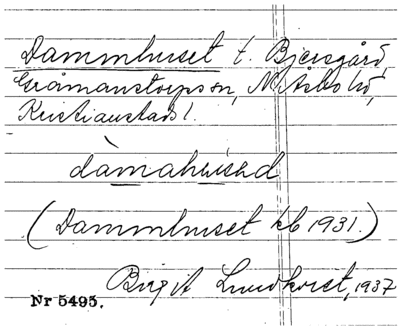 Dammhuset t. Bjersgård,
Gråmanstorps sn, N. Åsbo hd,
Kristianstads l.
dàmahuisəd
(Dammhuset kb 1931.)
Birgit Lundkvist, 1937
Nr 5495.